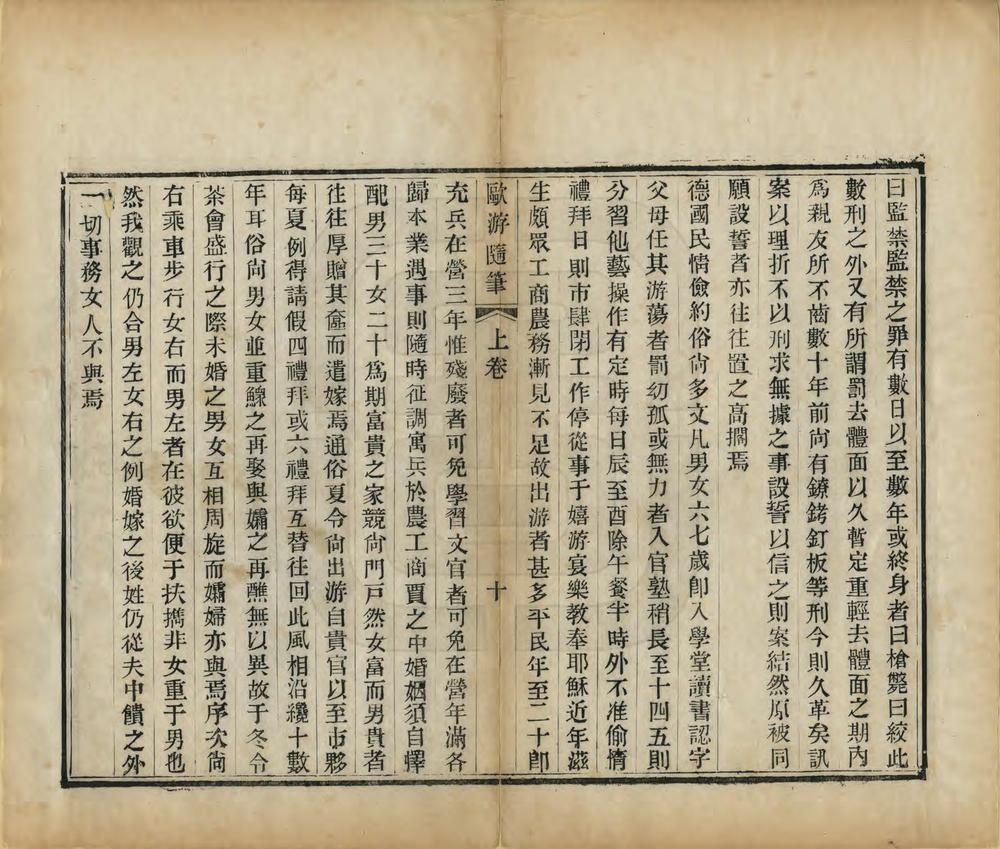 曰監禁監禁之罪有數日以至數年或終身者曰槍斃曰絞此
數刑之外又有所謂罰去體面以久暫定重輕去體面之期內
爲親友所不齒數十年前尙有鐐銬釘板等刑今則久革矣訊
案以理折不以刑求無據之事設誓以信之則案結然原被同
願設誓者亦往往置之高擱焉
德國民情儉約俗尙多文凡男女六七歲卽入學堂讀書認字
父母任其游蕩者罰幼孤或無力者入官塾稍長至十四五則
分習他藝操作有定時每日辰至酉除午餐半時外不准偷惰
禮拜日則市肆閉工作停從事于嬉游宴樂教奉耶穌近年滋
生頗眾工商農務漸見不足故出游者甚多平民年至二十卽
歐游隨筆 上卷 十
充兵在營三年惟殘廢者可免學習文官者可免在營年滿各
歸本業遇事則隨時征調寓兵於農工商賈之中婚姻須自擇
配男三十女二十爲期富貴之家競尙門戸然女富而男貴者
往往厚贈其奩而遣嫁焉通俗夏令尙出游自貴官以至市夥
每夏例得請假四禮拜或六禮拜互替往回此風相沿纔十數
年耳俗尙男女並重鰥之再娶與孀之再醮無以異故于冬令
茶會盛行之際未婚之男女互相周旋而孀婦亦與焉序次尙
右乘車步行女右而男左者在彼欲便于扶攜非女重于男也
然我觀之仍合男左女右之例婚嫁之後姓仍從夫中饋之外
一切事務女人不與焉